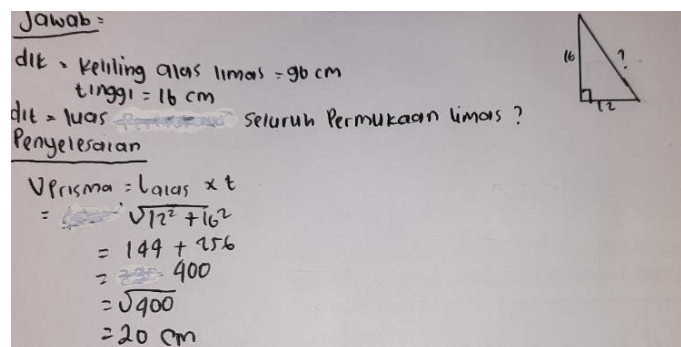 Jawab :
dit = Keliling alas limas = 96 cm
tinggi = 16 cm
dit = luas seluruh Permukaan limas ?
Penyelesaian
V Prisma = Lalas x t
= √12² + 16²
= 144 + 256
= 400
= √400
= 20 cm
16
?
12